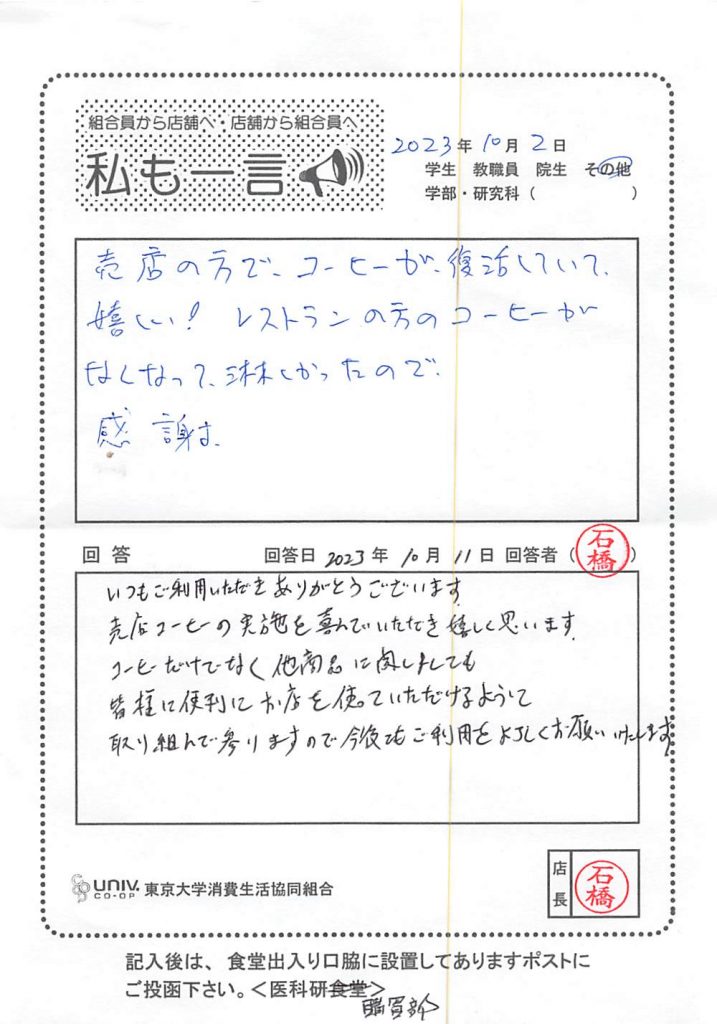 組合員から店舗へ・店舗から組合員へ
私も一言
2023年 10月 2日
学生 教職員 院生 その他
学部・研究科( )
売店の方で、コーヒーが、復活していて、
嬉しい! レストランの方のコーヒーが
なくなって、淋しかったので、
感謝す。
回答 回答日 2023年 10月 11日 回答者(石橋)
いつもご利用いただきありがとうございます
売店コーヒーの実施を喜んでいただき嬉しく思います。
コーヒーだけでなく他商品に関しましても
皆様に便利にお店を使っていただけるように
取り組んで参りますので今後ともご利用をよろしくお願いいたします
UNIV. CO-OP 東京大学消費生活協同組合
店長 石橋
記入後は、食堂出入り口脇に設置してありますポストに
ご投函下さい。<医科研食堂>
購買部